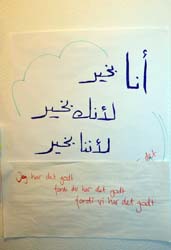 أنا بخير
لأنك بخير
لأننا بخير
Jeg har det godt
fordi du har det godt
fordi vi har det godt